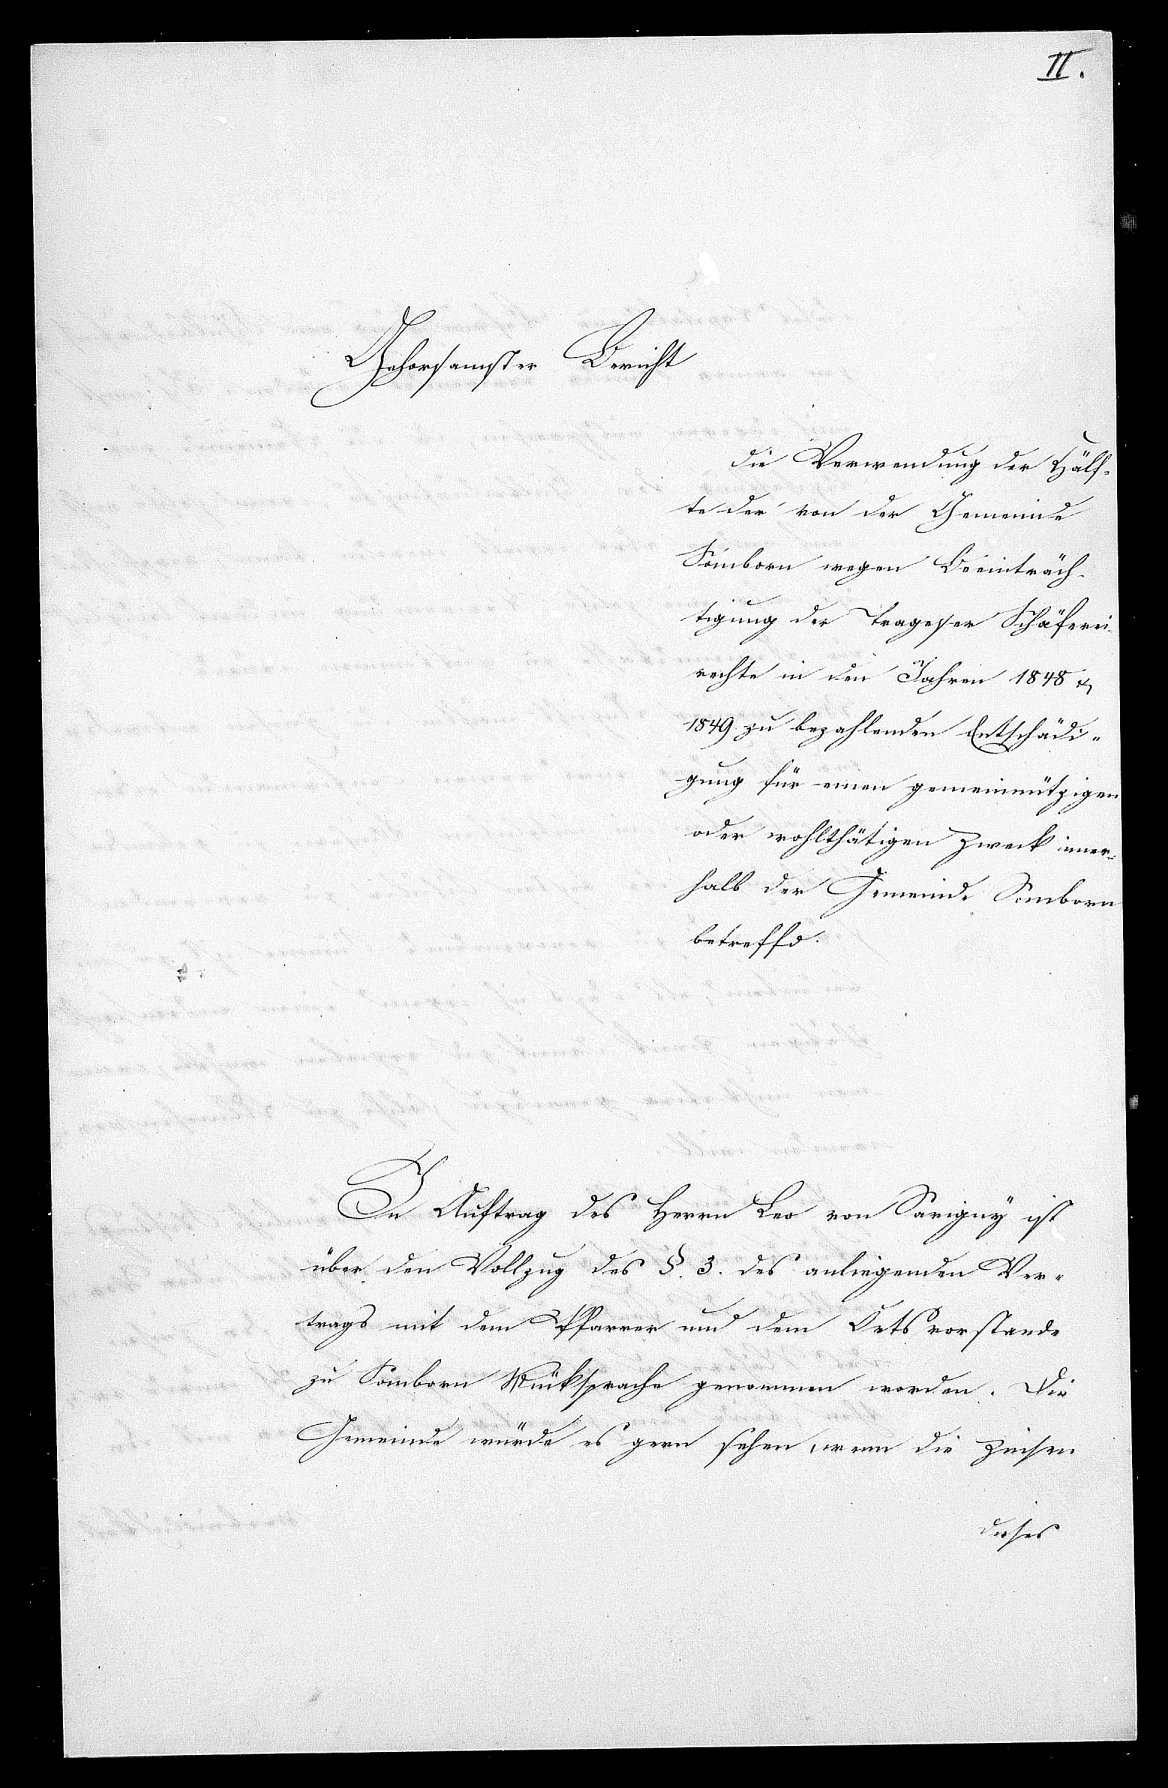 II.
Gehorsamster Bericht
die Verwendung der Hälf-
te der von der Gemeinde
Somborn wegen Beeinträch-
tigung der Trageser Schäferei-
rechte in den Jahren 1848 &
1849 zu bezahlenden Entschädi-
gung für einen gemeinnützigen
oder wohlthätigen Zweck inner-
halb der Gemeinde Somborn
betreffd.
In Auftrag des Herrn Leo von Savigny ist
über den Vollzug des §. 3. des anliegenden Ver-
trags mit dem Pfarrer und dem Ortsvorstande
zu Somborn Rücksprache genommen worden. Die
Gemeinde würde es gern sehen, wenn die Zinsen
dieses